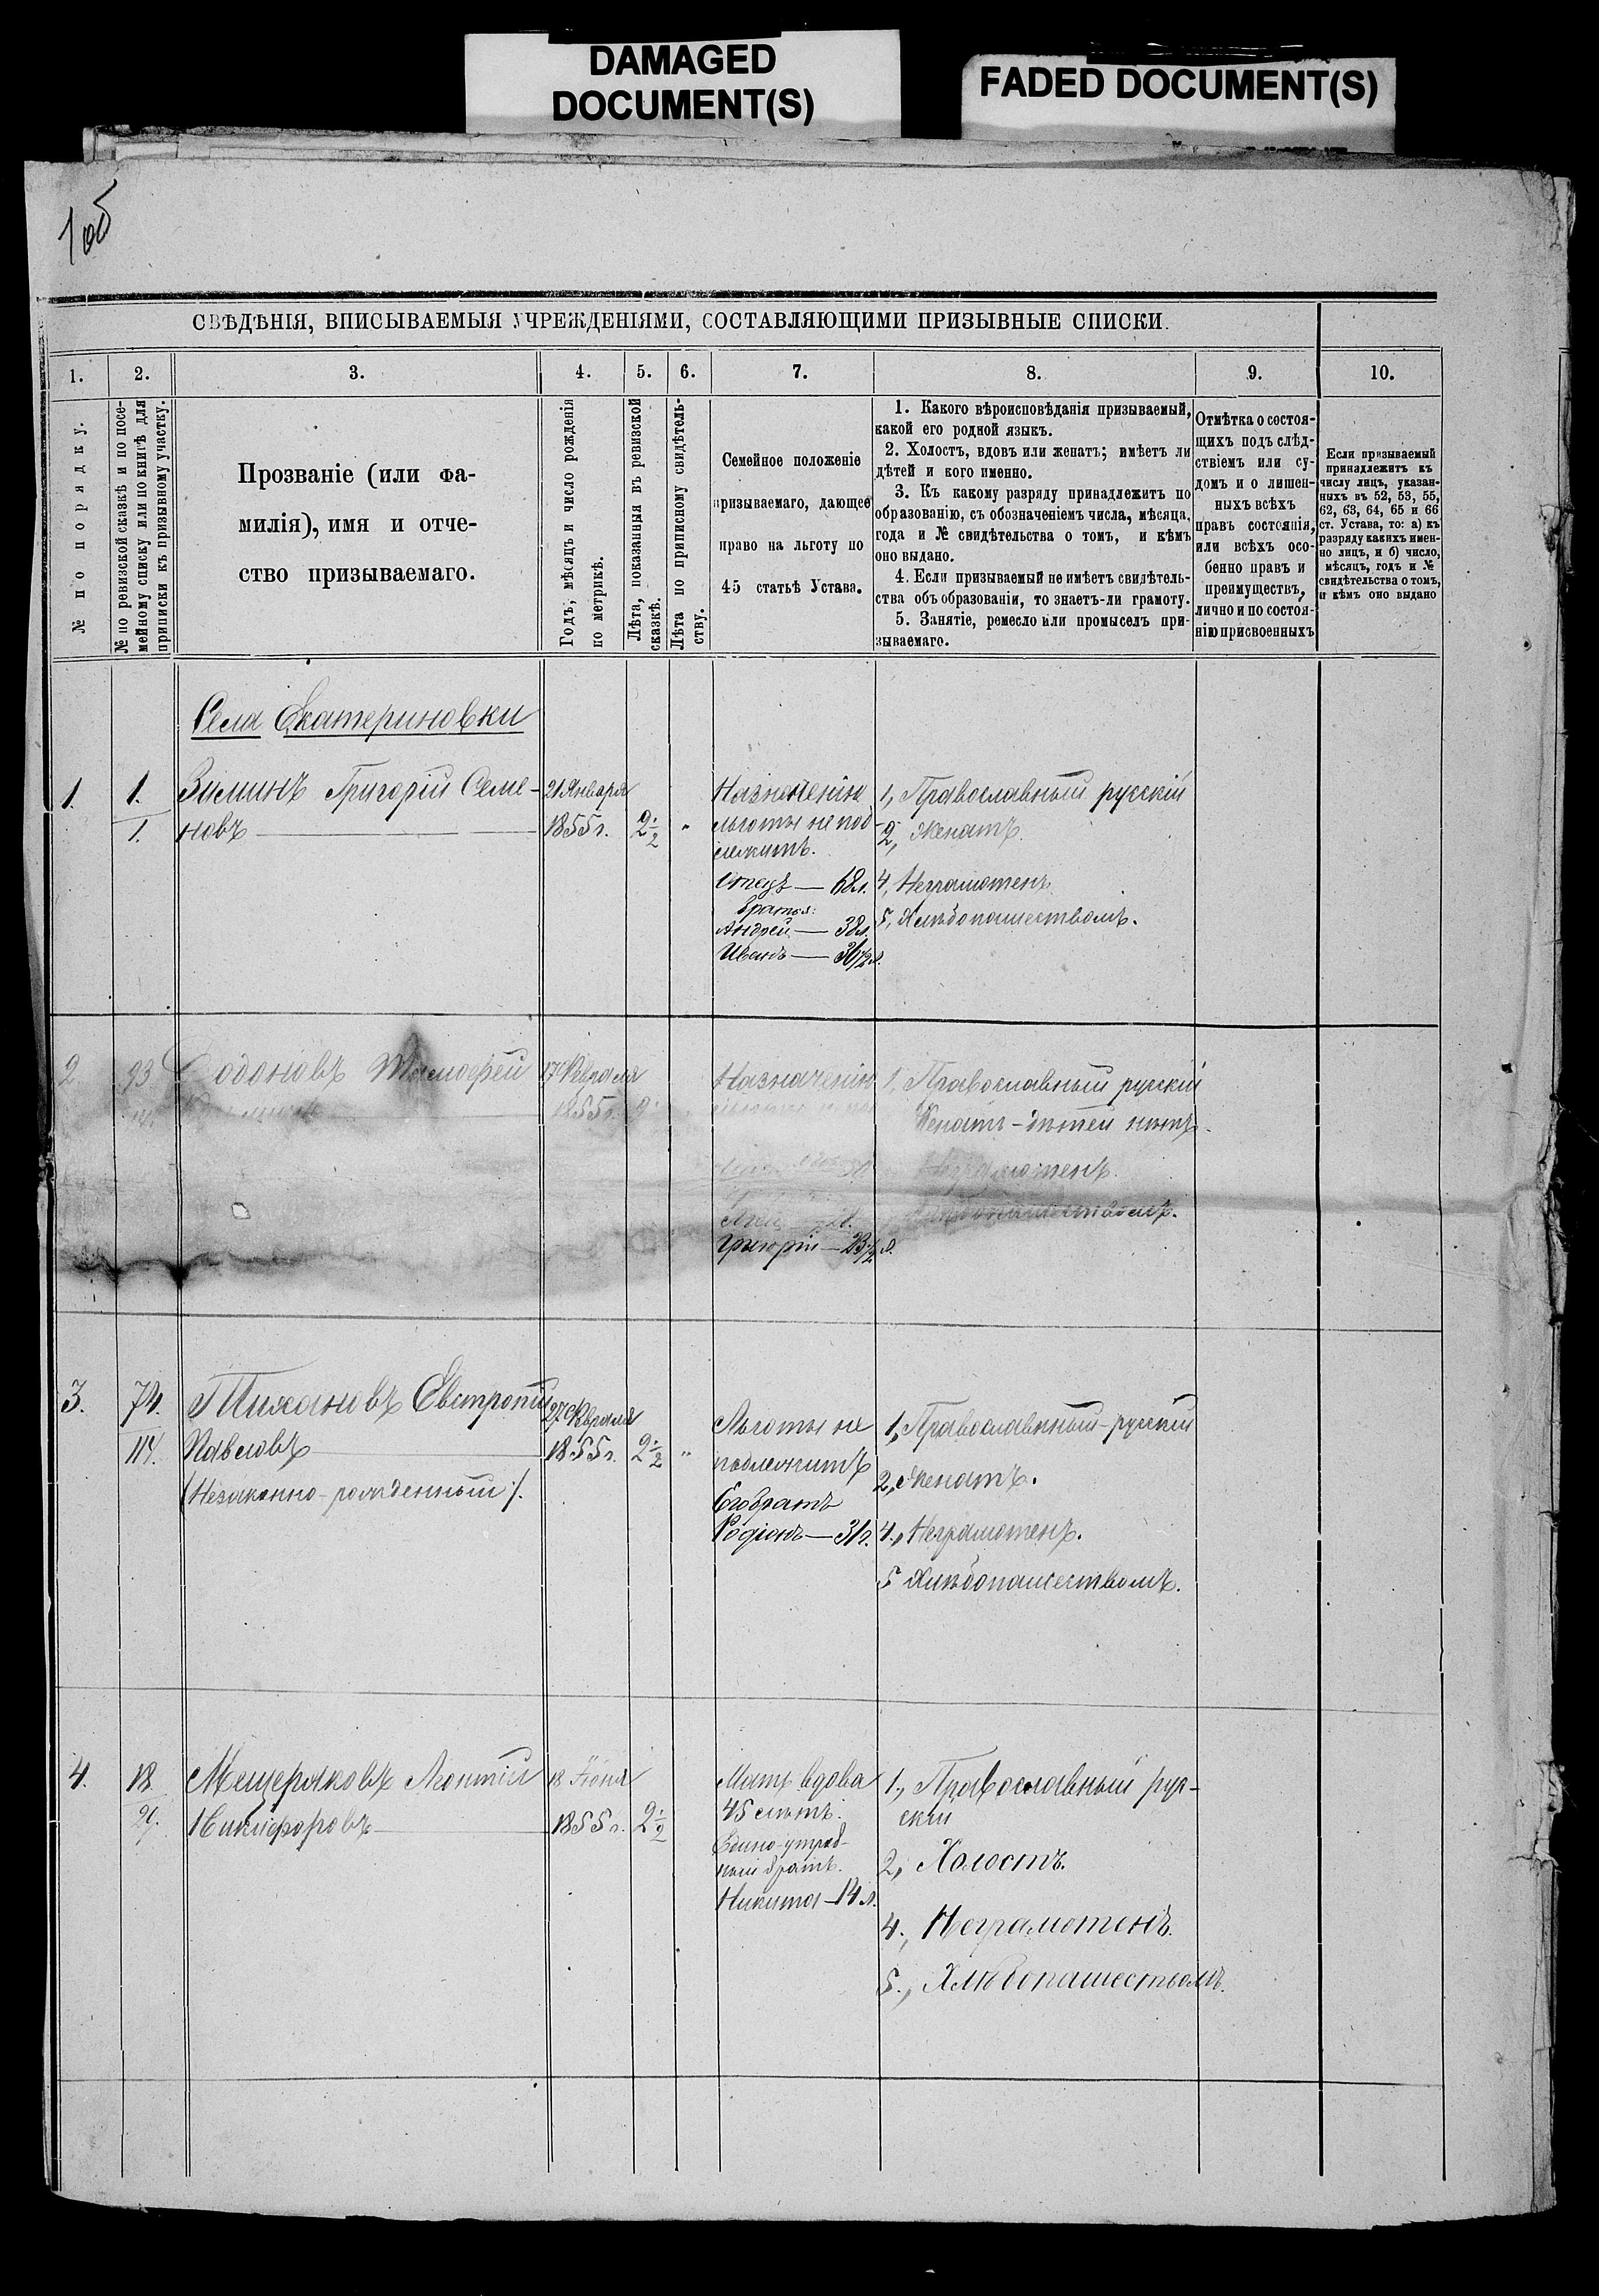 DAMAGED
DOCUMENT(S)
FADED DOCUMENT(S)
СВѢДѢНІЯ, ВПИСЫВАЕМЫЯ УЧРЕЖДЕНІЯМИ, СОСТАВЛЯЮЩИМИ ПРИЗЫВНЫЕ СПИСКИ.
1. 2. 3. 4. 5. 6. 7. 8. 9. 10.
№ по порядку.
№ по ревизской сказкѣ и по посе-
мейному списку или по книгѣ для
приписки къ призывному участку.
Прозваніе (или фа-
милія), имя и отче-
ство призываемаго.
Годъ, мѣсяцъ и число рожденія
по метрикѣ.
Лѣта, показанныя въ ревизской
сказкѣ.
Лѣта по приписному свидѣтель-
ству.
Семейное положеніе
призываемаго, дающее
право на льготу по
45 статьѣ Устава.
1. Какого вѣроисповѣданія призываемый,
какой его родной языкъ.
2. Холостъ, вдовъ или женатъ; имѣетъ ли
дѣтей и кого именно.
3. Къ какому разряду принадлежитъ по
образованію, съ обозначеніемъ числа, мѣсяца,
года и № свидѣтельства о томъ, и кѣмъ
оно выдано.
4. Если призываемый не имѣетъ свидѣтель-
ства объ образованіи, то знаетъ-ли грамоту.
5. Занятіе, ремесло или промыселъ при-
зываемаго.
Отмѣтка о состоя-
щихъ подъ слѣд-
ствіемъ или су-
домъ и о лишен-
ныхъ всѣхъ
правъ состоянія,
или всѣхъ осо-
бенно правъ и
преимуществъ,
лично и по состоя-
нію присвоенныхъ
Если призываемый
принадлежитъ къ
числу лицъ, указан-
ныхъ въ 52, 53, 55,
62, 63, 64, 65 и 66
ст. Устава, то: а) къ
разряду какихъ имен-
но лицъ, и б) число,
мѣсяцъ, годъ и №
свидѣтельства о томъ,
и кѣмъ оно выдано
Села Екатериновки
1. 1. Зиминъ Григорій Семе-
1. новъ
21 Января
1855 г. 2 1/2 "
Назначенію
льготы не под-
лежитъ.
Отецъ — 68 л.
братья:
Андрей — 38 л.
Иванъ — 36 1/2 л.
1, Православный русскій
2, Женатъ.
4, Неграмотенъ
5, Хлѣбопашествомъ.
2 93 Тимофей
17 Февраля
1855 г.
Назначенію
Григорій — 23 1/2 л.
1, Православный русскій
Женатъ - дѣтей нѣтъ.
Неграмотенъ.
Хлѣбопашествомъ.
3. 74. Тихановъ Евтропій
114. Павловъ
(Незаконно-рожденный).
27 Февраля
1855 г. 2 1/2 "
Льготы не
подлежитъ
Его братъ
Родіонъ — 31 г.
1, Православный русскій
2, Женатъ.
4, Неграмотенъ.
5 Хлѣбопашествомъ.
4. 18 Мещеряковъ Леонтій
29. Никифоровъ
18 Іюня
1855 г. 2 1/2
Мать вдова
45 лѣтъ.
Едино-утроб-
ный братъ.
Никита — 14 л.
1, Православный рус-
скій
2, Холостъ.
4., Неграмотенъ.
5., Хлѣбопашествомъ.